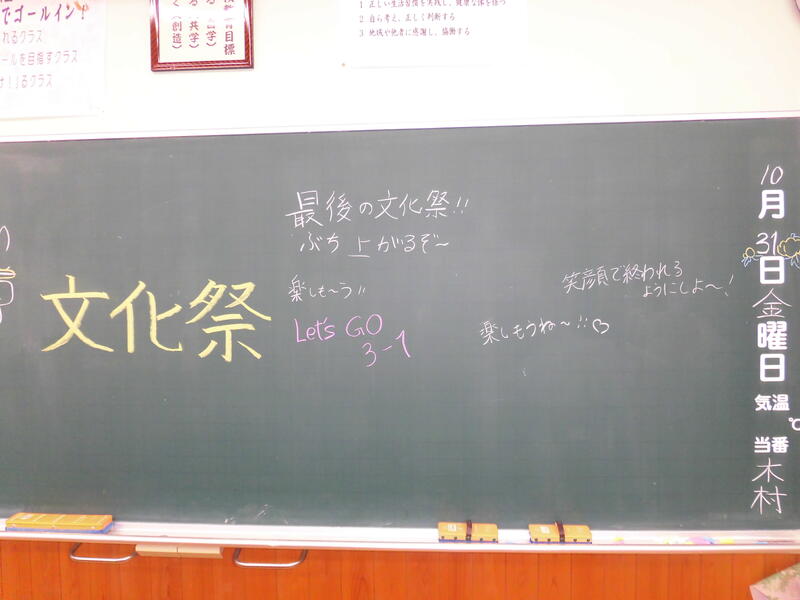 でゴールイン!
れるクラス
ールを目指すクラス
るクラス
目標
学)
共学)
(創造)
1 正しい生活習慣を実践し、健康な体を培う
2 自ら考え、正しく判断する
3 地域や他者に感謝し、協働する
最後の文化祭!!
ぶち上がるぞ~
楽しも~う!!
Let's GO
3-1
文化祭
笑顔で終われる
ようにしよ~!
楽しもうね~!!♡
10
月
31
日
金
曜
日
気温
℃
当番
木村